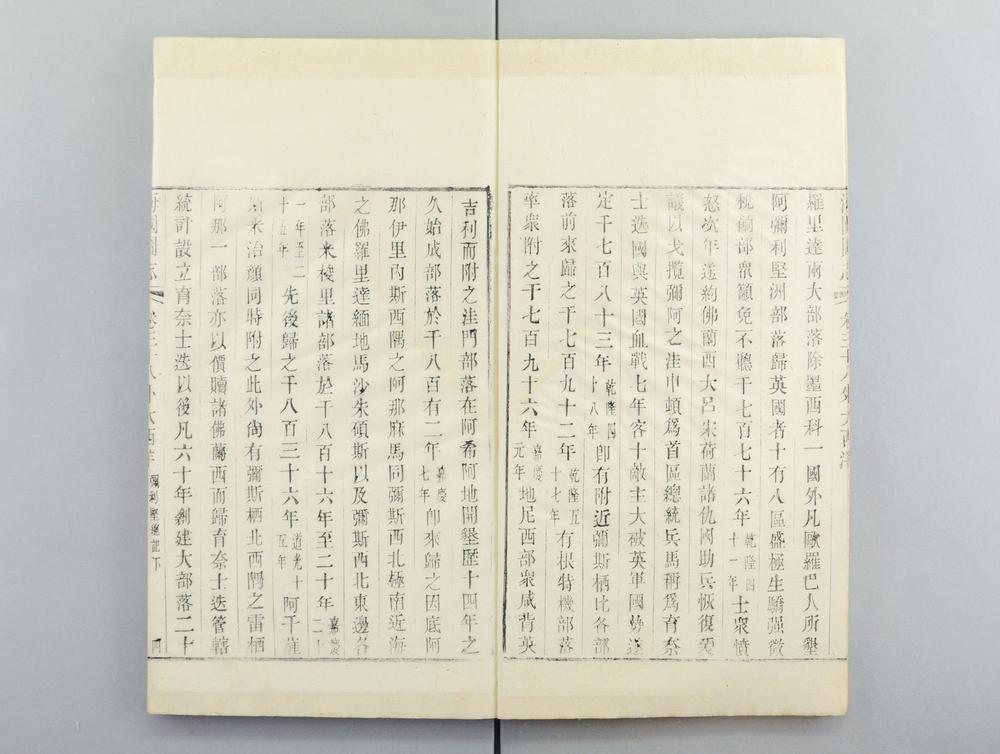 海國圖志 卷三十八 外大西洋
羅里達兩大部落除墨西科一國外凡歐羅巴人所墾
阿彌利堅洲部落歸英國者十有八區盛極生驕强徵
稅餉部衆籲免不聽千七百七十六年乾隆四十一年士衆憤
怒次年遂約佛蘭西大呂宋荷蘭諸仇國助兵恢復爰
議以戈攬彌阿之洼申頓爲首區總統兵馬稱爲育奈
士迭國與英國血戰七年客十敵主大破英軍國勢遂
定千七百八十三年乾隆四十八年卽有附近彌斯栖比各部
落前來歸之千七百九十二年乾隆五十七年有根特機部落
率衆附之千七百九十六年嘉慶元年地尼西部衆咸背英
吉利而附之洼門部落在阿希阿地開墾歷十四年之
久始成部落於千八百有二年嘉慶七年卽來歸之因底阿
那伊里內斯西隅之阿那麻馬同彌斯西北極南近海
之佛羅里達緬地馬沙朱碩斯以及彌斯西北東邊各
部落米稜里諸部落於千八百十六年至二十年嘉慶二十
一年至二十五年先後歸之千八百三十六年道光十五年阿干薩
斯米治顏同時附之此外尙有彌斯栖北西隅之雷栖
阿那一部落亦以價贖諸佛蘭西而歸育奈士迭管轄
統計設立育奈士迭以後凡六十年創建大部落二十
海國圖志 卷三十八 外大西洋 彌利堅總記下 四